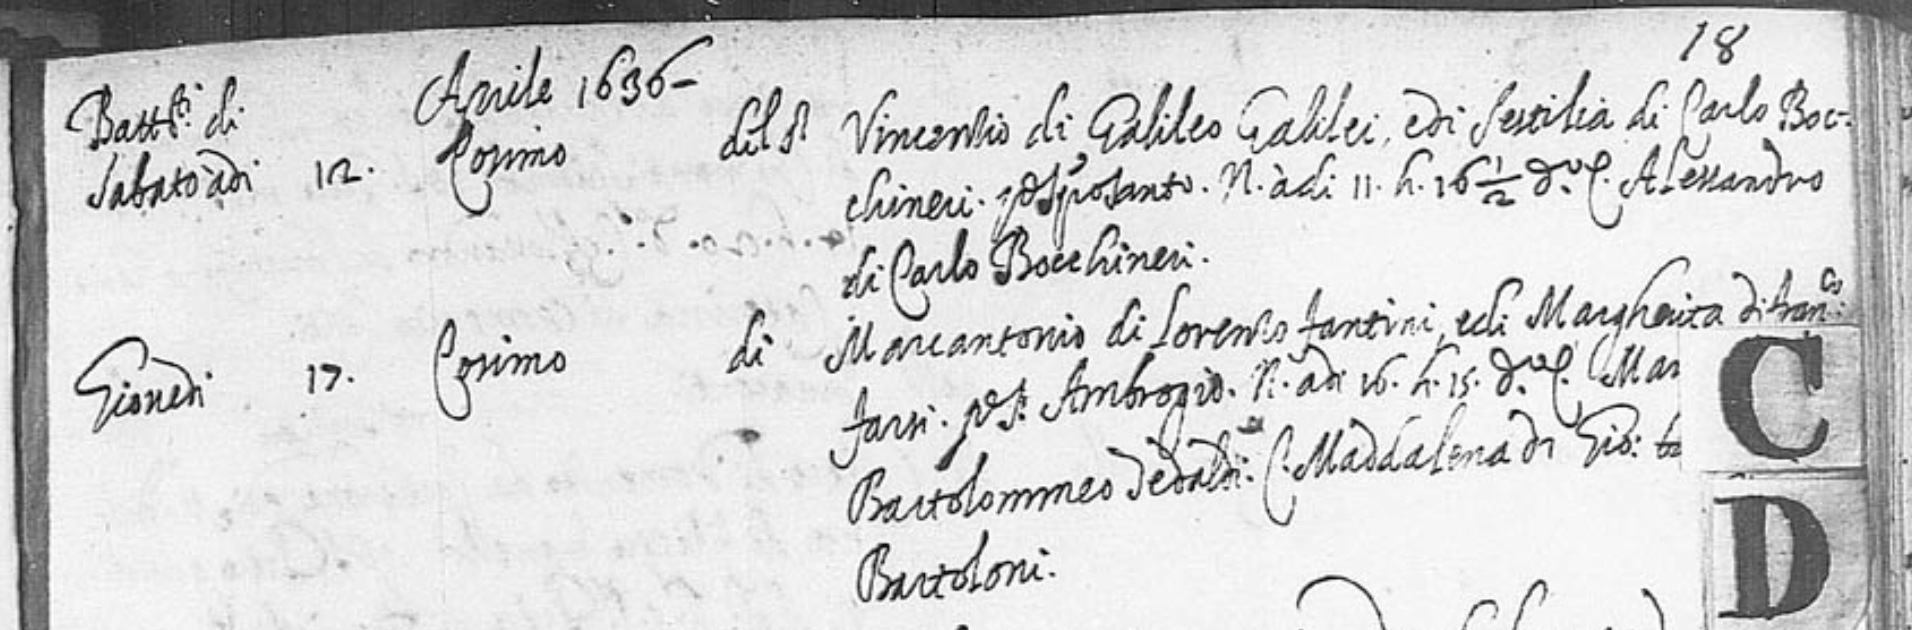 18
Aprile 1636
Batt.ti di
Sabato adi 12. Cosimo del Sr Vincenzio di Galileo Galilei, e di Sestilia di Carlo Boc-
chineri. po Spo Santo. N. à di 11. h. 16 1/2 d.o C. Alessandro
di Carlo Bocchineri.
Giovedi 17. Cosimo di Marcantonio di Lorenzo fantini, e di Margherita di fran.co
Po S. Ambrogio. N. adi 16. h. 15. d.o C. Mar
Bartolommeo C. Maddalena di Gio:
Bartoloni.
C
D